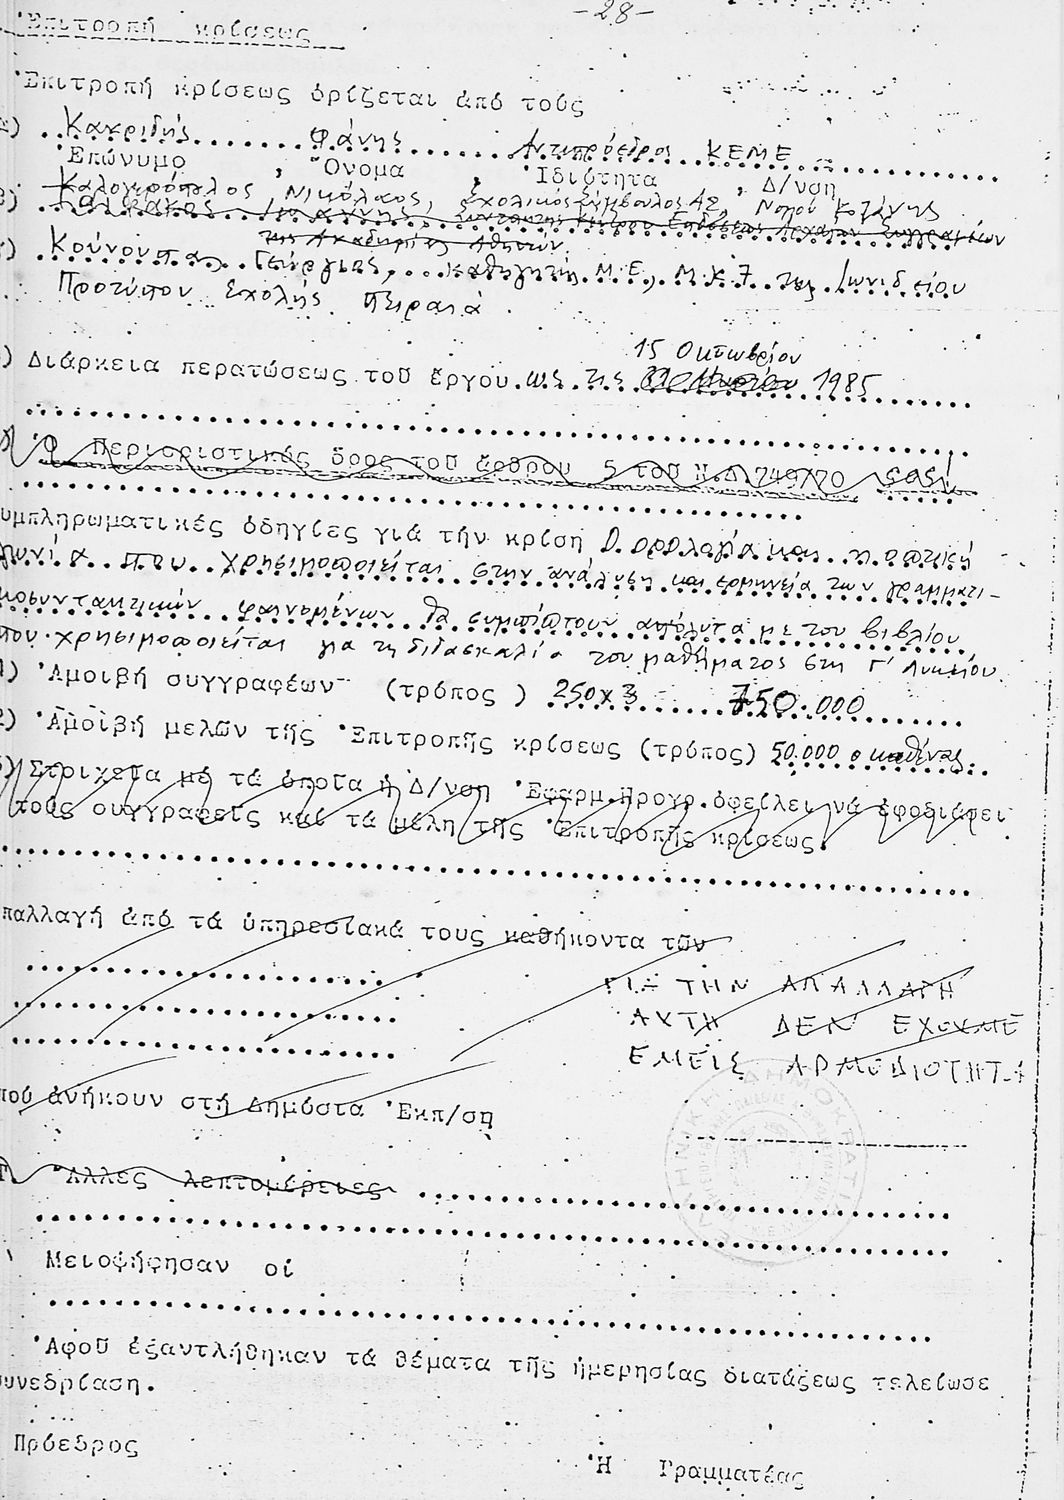 -28-
Ἐπιτροπή κρίσεως
Ἐπιτροπή κρίσεως ὁρίζεται ἀπό τούς
Κακριδής Φάνης Αντιπρόεδρος ΚΕΜΕ
Ἐπώνυμο , Ὄνομα , Ἰδιότητα , Δ/νση
Καλογερόπουλος Νικόλαος, Σχολικός Σύμβουλος Νομού Κοζάνης
Ιωάννης, Συντάκτης Κέντρου Εκδόσεως Αρχαίων Συγγραφέων
της Ακαδημίας Αθηνών
Γεώργιος, καθηγητής Μ.Ε., της Ιωνιδείου
Προτύπου Σχολής Πειραιά
15 Οκτωβρίου
Διάρκεια περατώσεως τοῦ ἔργου ως τις 1985
Ὁ Περιοριστικός ὅρος τοῦ ἄρθρου 5 τοῦ Ν.Δ.749/70
υμπληρωματικές ὁδηγίες γιά τήν κρίση Η ορολογία και η οπτική
γωνία που χρησιμοποιείται στην ανάλυση και ερμηνεία των γραμματι-
κοσυντακτικών φαινομένων θα συμπίπτουν απόλυτα με του βιβλίου
που χρησιμοποιείται για τη διδασκαλία του μαθήματος στη Γ' Λυκείου
1) Ἀμοιβή συγγραφέων (τρόπος ) 250 x 3 750.000
2) Ἀμοιβή μελῶν τῆς Ἐπιτροπῆς κρίσεως (τρόπος) 50.000 ο καθένας
3) Στοιχεῖα μέ τά ὁποῖα ἡ Δ/νση Ἐφαρμ.Προγρ.ὀφείλει νά ἐφοδιάσει
τούς συγγραφεῖς καί τά μέλη τῆς Ἐπιτροπῆς κρίσεως.
παλλαγή ἀπό τά ὑπηρεσιακά τους καθήκοντα τῶν
ΓΙΑ ΤΗΝ ΑΠΑΛΛΑΓΗ
ΑΥΤΗ ΔΕΝ ΕΧΟΥΜΕ
ΕΜΕΙΣ ΑΡΜΟΔΙΟΤΗΤΑ
πού ἀνήκουν στή Δημόσια Ἐκπ/ση
Ἄλλες λεπτομέρειες
Μειοψήφησαν οἱ
Ἀφοῦ ἐξαντλήθηκαν τά θέματα τῆς ἡμερησίας διατάξεως τελείωσε
συνεδρίαση.
Πρόεδρος
Ἡ Γραμματέας